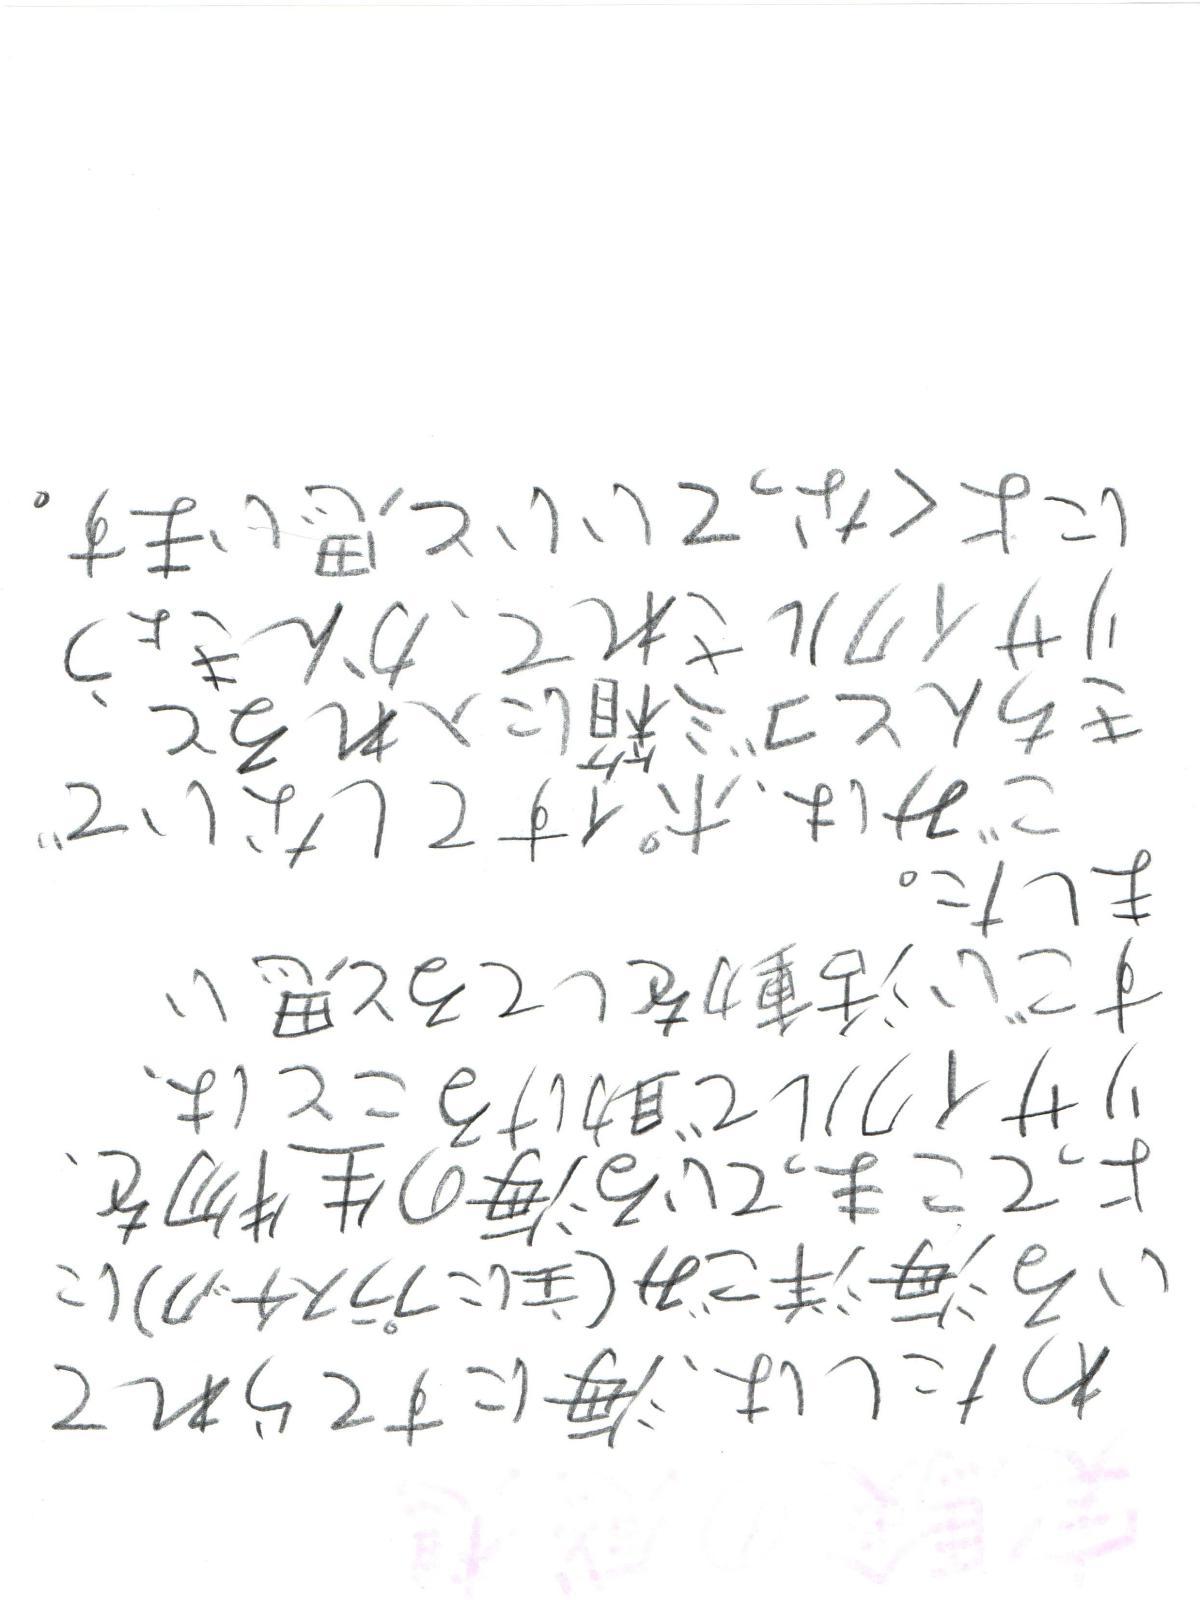 実験の感想
わたしは、海にすてられて
いる海洋ごみ(主にプラスチック)に
よってこまっている海の生物を、
リサイクルで助けることは、
すごい活動をしてると思い
ました。
ごみは、ポイすてしないで
きちんとゴミ箱に入れると、
リサイクルされて、かんきょう
によくなっていいと、思います。